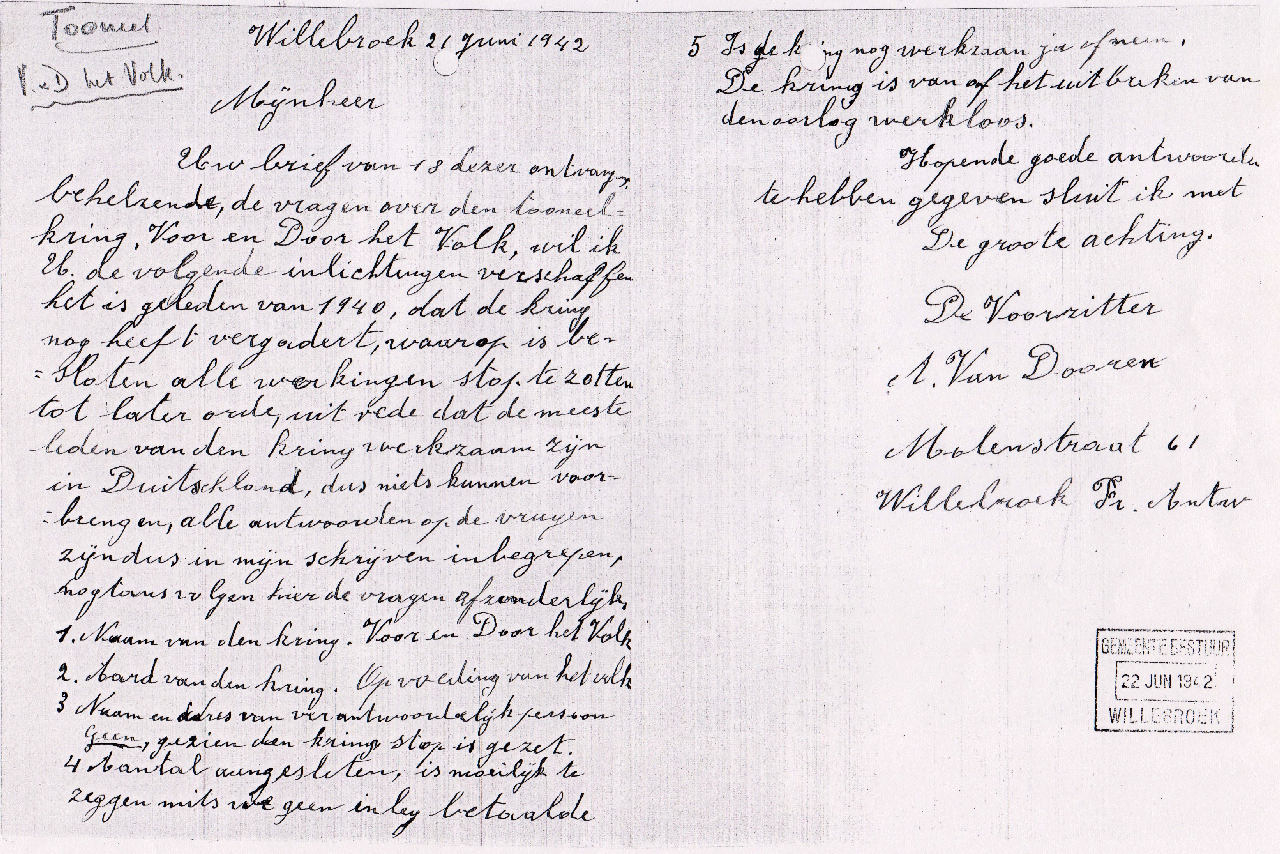 Tooneel
V. & D het Volk.
Willebroek 21 Juni 1942
Mijnheer
Uw brief van 18 dezer ontvang.
behelzende, de vragen over den tooneel=
kring, Voor en Door het Volk, wil ik
U. de volgende inlichtingen verschaffen
het is geleden van 1940, dat de kring
nog heeft vergadert, waarop is be-
=sloten alle werkingen stop te zetten
tot later orde, uit rede dat de meeste
leden van den kring werkzaam zijn
in Duitschland, dus niets kunnen voor-
=brengen, alle antwoorden op de vragen
zijn dus in mijn schrijven inbegrepen,
nogtans volgen hier de vragen afzonderlijk,
1. Naam van den kring. Voor en Door het Volk
2. Aard van den kring. Opvoeding van het volk
3 Naam en adres van verantwoordelijk persoon
Geen, gezien den kring stop is gezet.
4 Aantal aangesloten, is moeilijk te
zeggen mits we geen inleg betaalde
5 Is de k ing nog werkzaan ja of neen.
De kring is van af het uitbreken van
den oorlog werkloos.
Hopende goede antwoorden
te hebben gegeven sluit ik met
De groote achting.
De Voorzitter
A. Van Dooren
Molenstraat 61
Willebroek Pr. Antw
GEMEENTE BESTUUR
22 JUN 1942
WILLEBROEK